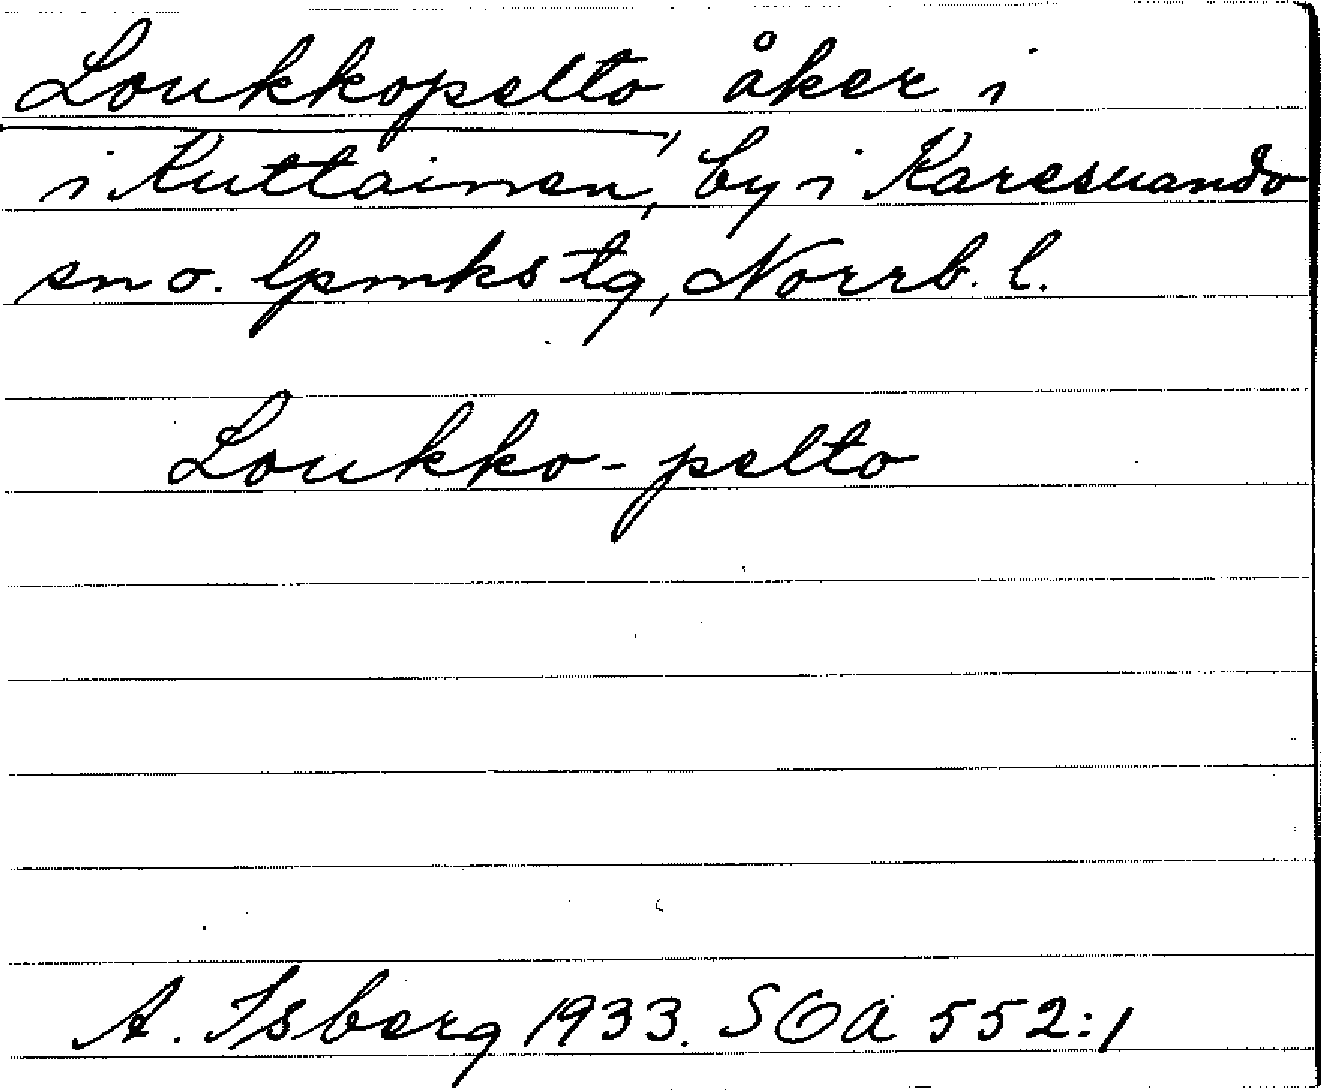 Loukkopelto, åker i
i Kuttainen, by i Karesuando
sn o. lpmks tg, Norrb. l.
Loukko-pelto
A. Isberg 1933. SOA 552:1